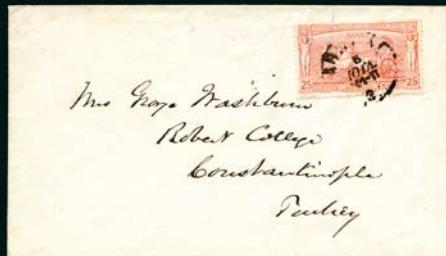 25 25
Mrs George Washburn
Robert College
Constantinople
Turkey